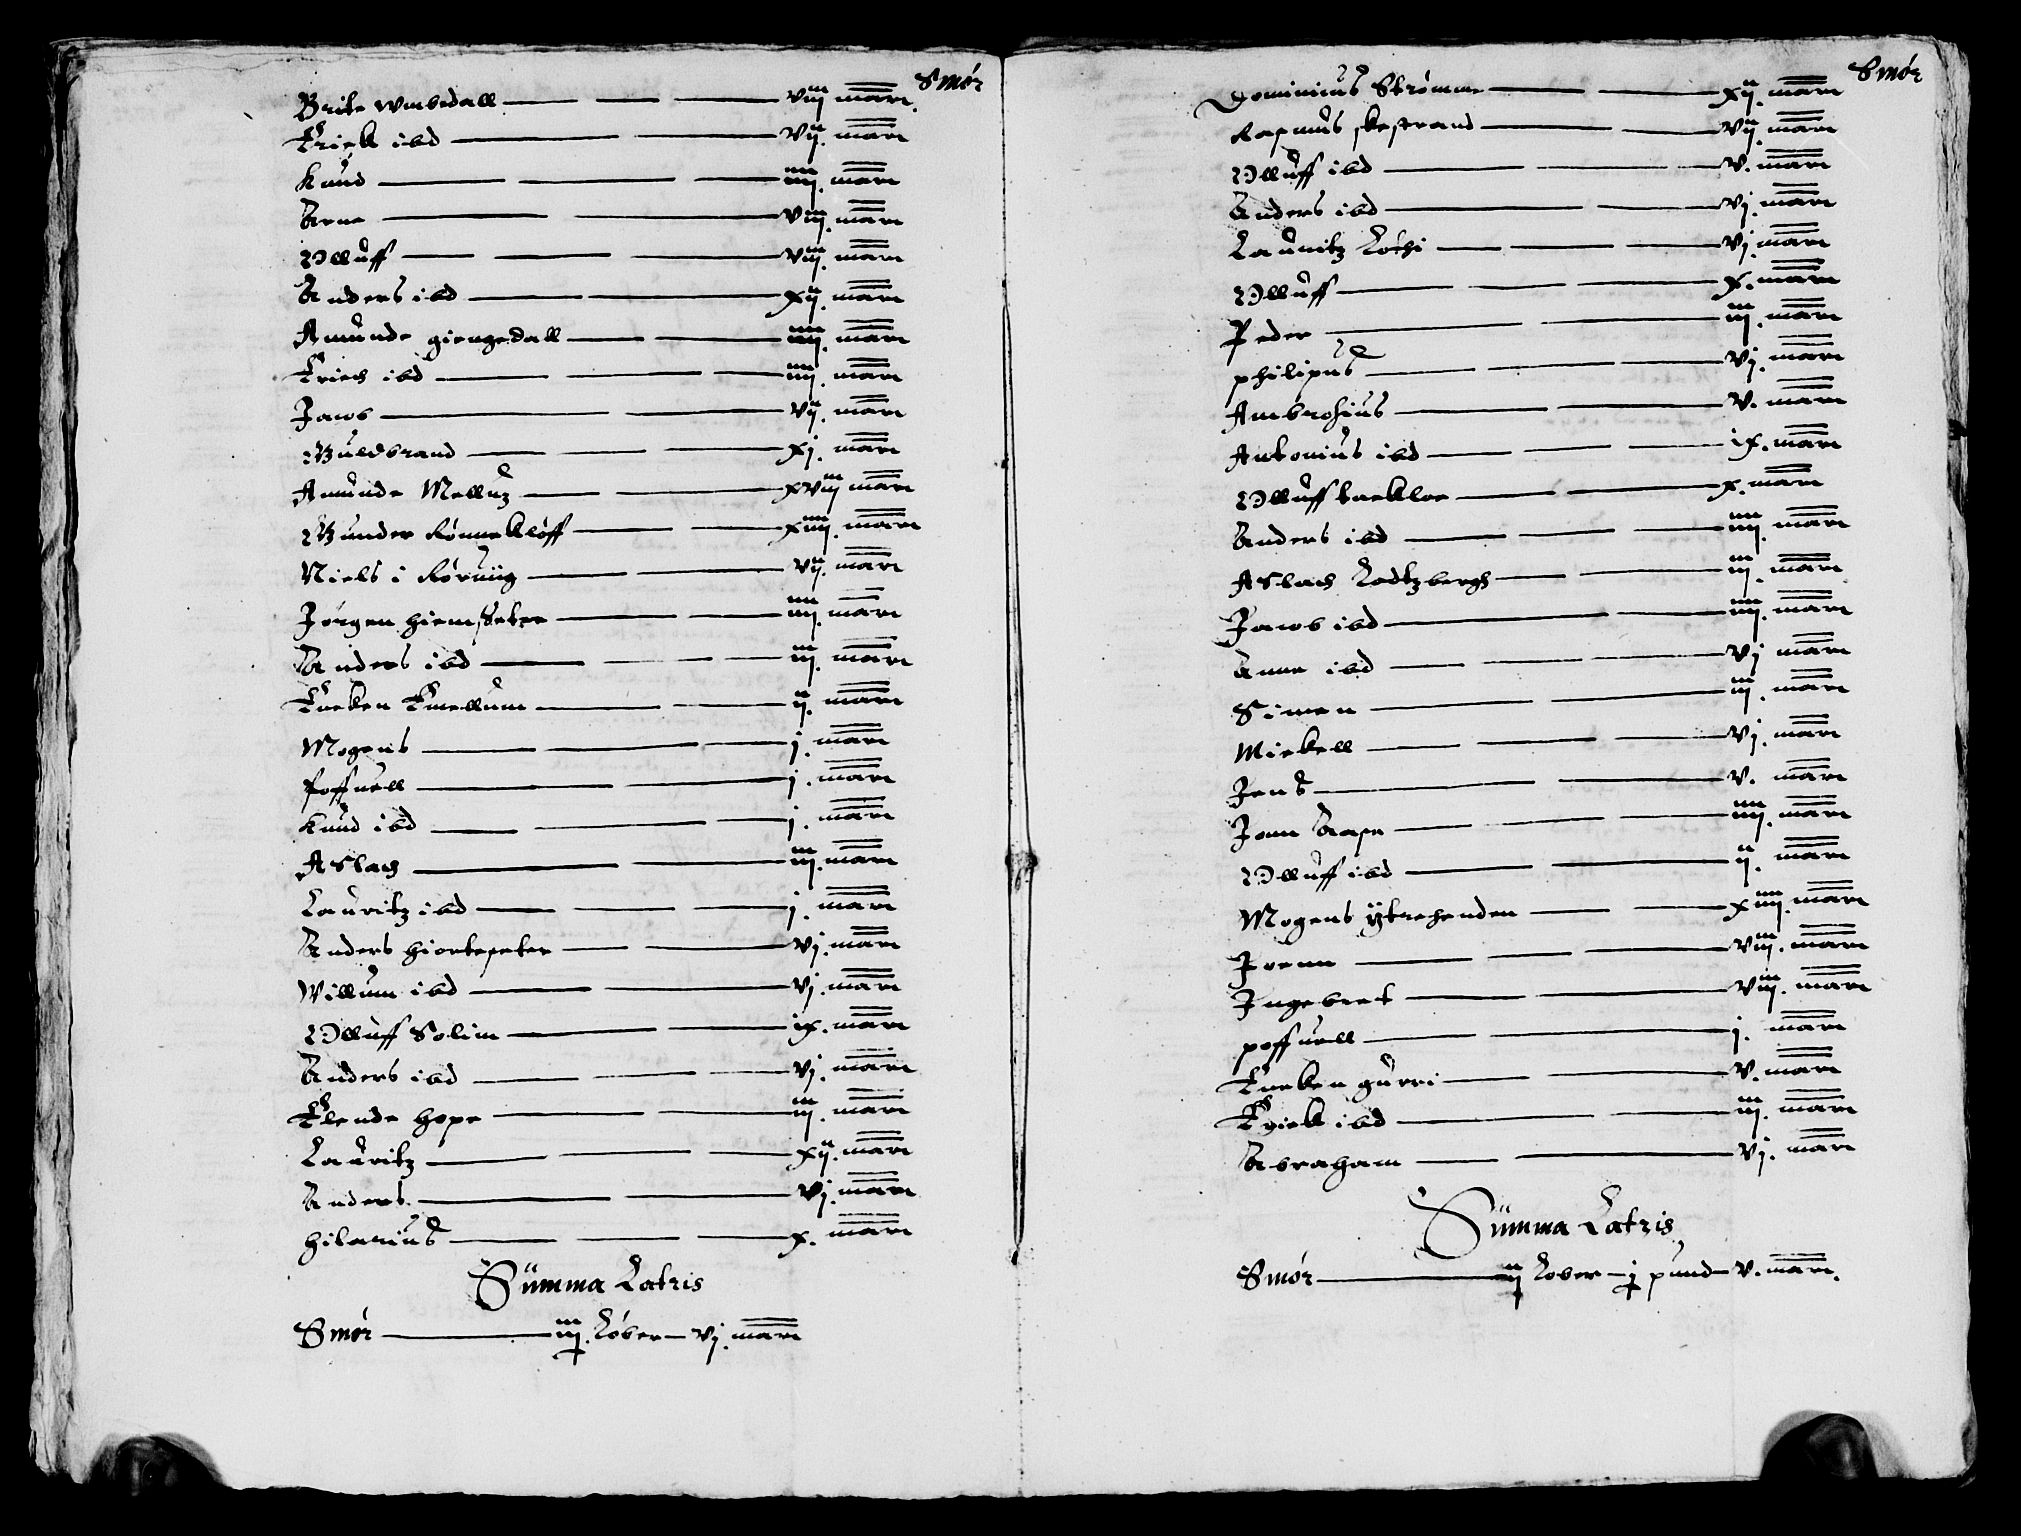 Smör
Brite Wmbedall — — — viij marc.
Erick ibd — — vij. marc
Knud — — — iiij. marc
Arne — — viij. marc
Olluff — — — viij. marc
Anders ibd — — xij. marc
Amunde giengedall — — iiij. marc
Erich ibd — — — iiij. marc
Jacob — — vij. marc
Guldbrand — — — xj. marc
Amunde Melluz — — xviij marc
Gunder Rönneklöff — — xiiij. marc
Niels i Röruiig — — vij. marc
Jörgen hiemsetter — — iiij. marc
Anders ibd — — — iij. marc
Encken Emellum — — ij. marc
Mogens — — — j. marc
Poffuell — — j. marc
Knud ibd — — — j. marc
Aslach — — iij. marc
Lauritz ibd — — — j. marc
Anders hiorteseter — — vj. marc
Willum ibd — — vj. marc
Olluff Solim — — ix. marc
Anders ibd — — — vj. marc
Elende hope — — iij. marc
Lauritz — — — xij. marc
Anders — — vj. marc
Hilarius — — — x. marc
Summa Latris
Smör — iij. Löber — vj. marc
Smör
Dominicus Strömme — — xij. marc
Rasmus skestrand — — vij marc
Olluff ibd — — v. marc
Anders ibd — — vj. marc
Lauritz Löthi — — — vj. marc
Olluff — — — x. marc
Peder — — iij. marc
Philipus — — — vj. marc
Ambrosius — — v. marc
Antonius ibd — — — ix. marc
Olluff backloe — — x. marc
Anders ibd — — — iiij. marc
Aslach Lodtzbergh — — iij. marc
Jacob ibd — — iiij. marc
Anne ibd — — — vj marc
Simen — — iij. marc
Mickell — — — vj. marc
Jens — — v. marc
Jonn Aase — — — iiij. marc
Olluff ibd — — ij. marc
Mogens ÿtrehenden — — xiiij. marc
Joenn — — — viij. marc
Ingebret — — viij. marc
poffuell — — j. marc
Encken gurri — — v. marc
Erick ibd — — iij. marc
Abraham — — vj. marc
Summa Latris
Smör — ij Lober — j pund — v. marc.